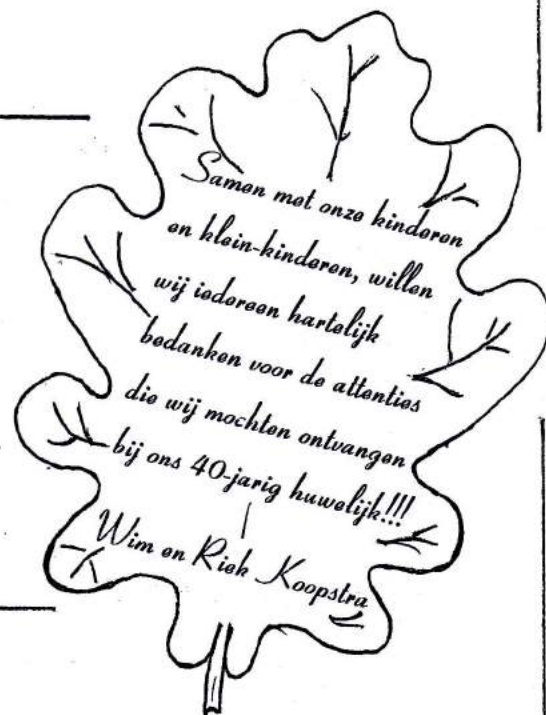 Samen met onze kinderen
en klein-kinderen, willen
wij iedereen hartelijk
bedanken voor de attenties
die wij mochten ontvangen
bij ons 40-jarig huwelijk!!!
Wim en Riek Koopstra